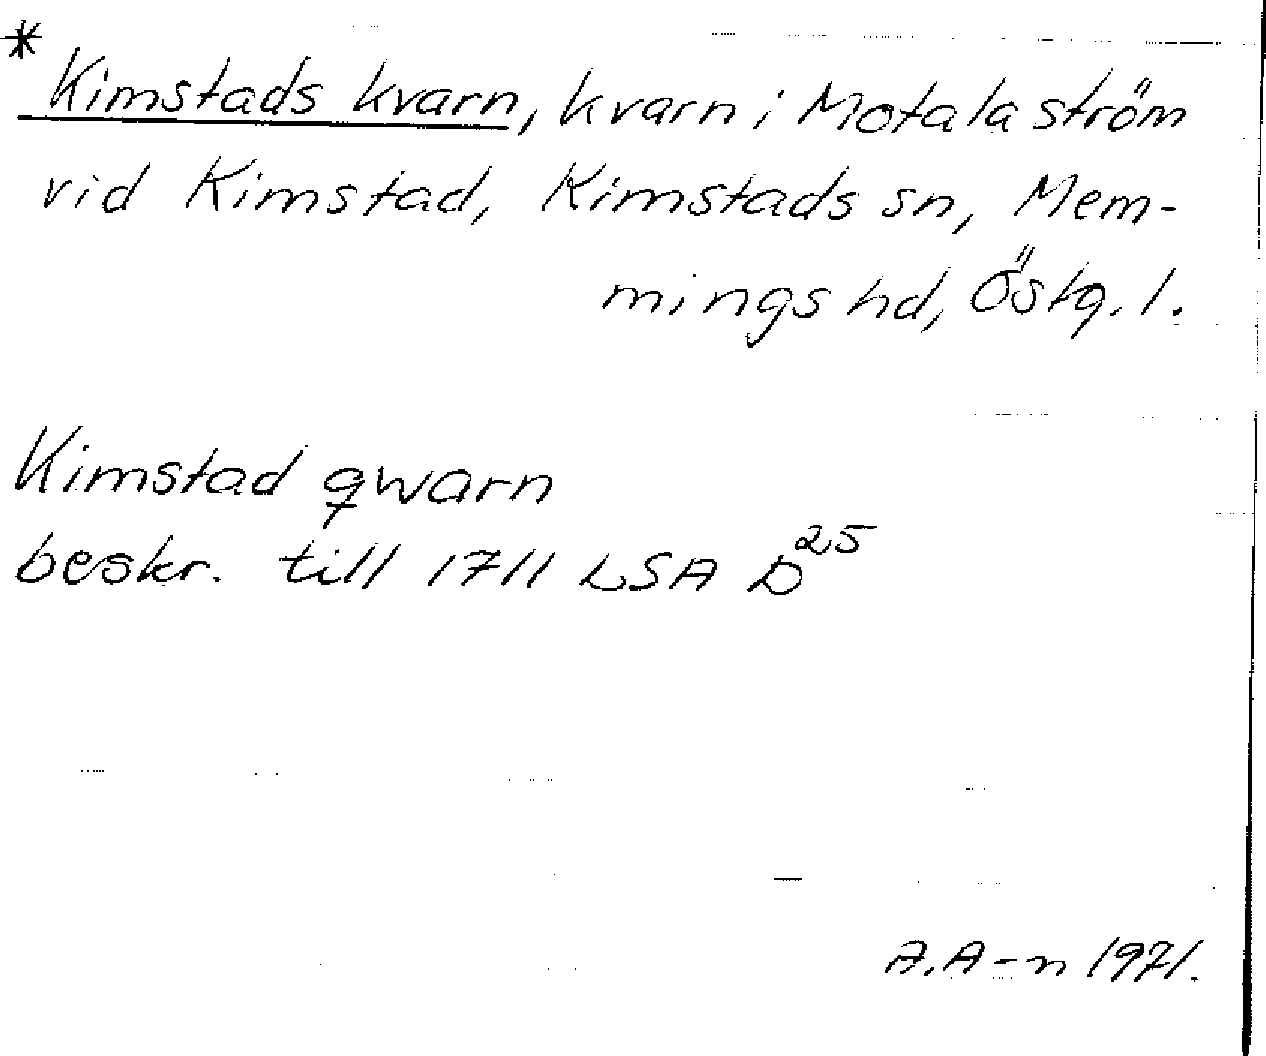 * Kimstads kvarn, kvarn i Motala ström
vid Kimstad, Kimstads sn, Mem-
mings hd, Östg. l.
Kimstad qwarn
beskr. till 1711 LSA D25
A.A-n 1971.